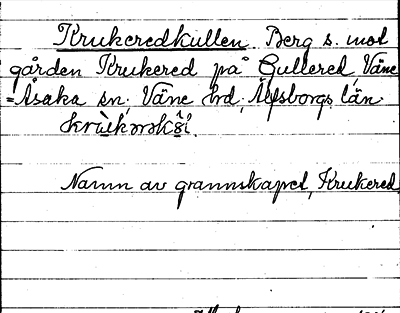 Krukeredkullen Berg s. mot
gården Krukered på Gullered, Väne
=Åsaka sn, Väne hd, Älvsborgs län.
Namn av grannskapet, Krukered